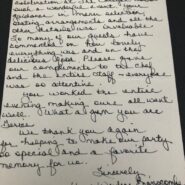 celebration at The
was a wonderful event. Your
guidance in
seating arrangements and all the
other details was
So many of our guests have
commented on how truly
everything was and so very
delicious food. Please give
our compliments to the chef
and the entire staff. Everyone
was so attentive.
You worked the entire
evening making sure all went
well. What a gem you are
We thank you again
for helping to make our party
so special and a favorite
memory for us.
Sincerely,